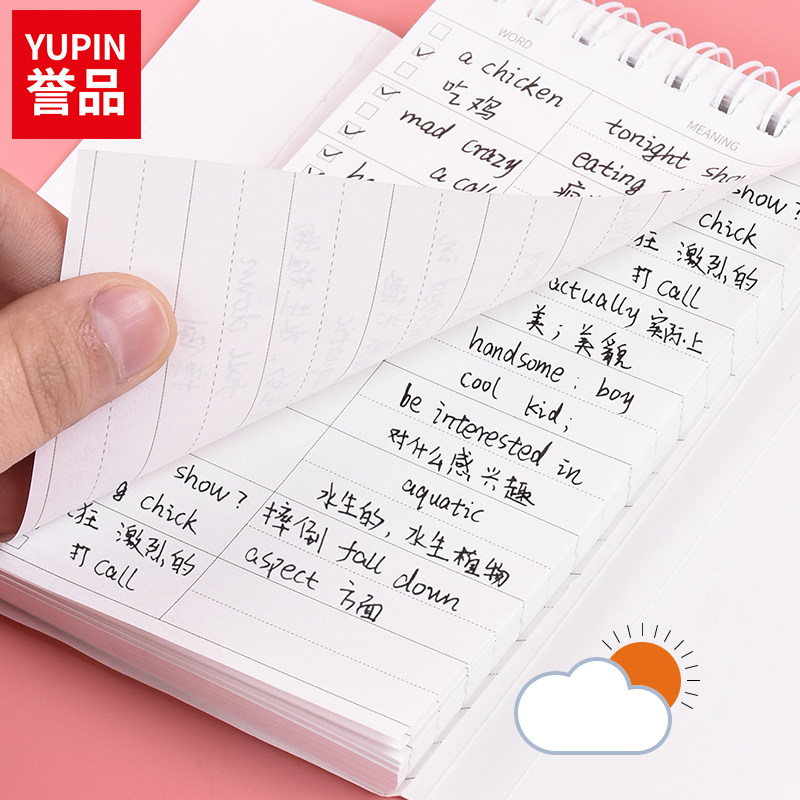 YUPIN
誉品
WORD
MEANING
a chicken
吃鸡
mad crazy
a call
tonight
eating
show?
chick
狂 激烈的
打call
actually 实际上
美；美貌
handsome: boy
cool kid;
be interested in
对什么感兴趣
aquatic
水生的，水生植物
摔倒 fall down
aspect 方面
show?
g chick
狂 激烈的
打call